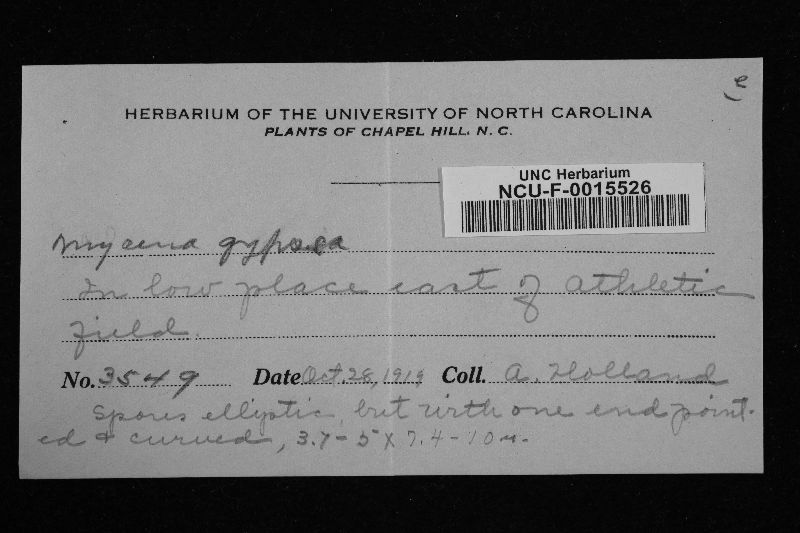 HERBARIUM OF THE UNIVERSITY OF NORTH CAROLINA
PLANTS OF CHAPEL HILL, N. C.
UNC Herbarium
NCU-F-0015526
Mycena gypsea
In low place east of athletic
field.
No. 3549 Date Oct. 28, 1919 Coll. A. Holland
Spores elliptic, but with one end point-
ed & curved, 3.7-5 X 7.4-10 u.